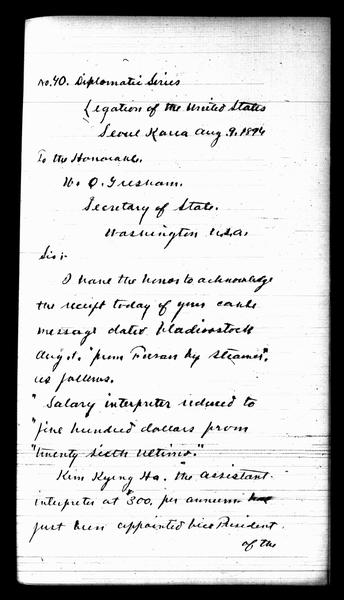 No. 40. Diplomatic Series
Legation of the United States
Seoul Korea Aug 9. 1894
To the Honorable.
W. Q. Gresham.
Secretary of State.
Washington U.S.A.
Sir:
I have the honor to acknowledge
the receipt today of your cable
message dated Vladivostock
Aug 1. "from Fusan by steamer".
as follows.
"Salary interpreter reduced to
"five hundred dollars from
"twenty sixth ultimo."
Kim Kyeng Ha. the assistant
interpreter at $300. per annum has
just been appointed Vice President
of the